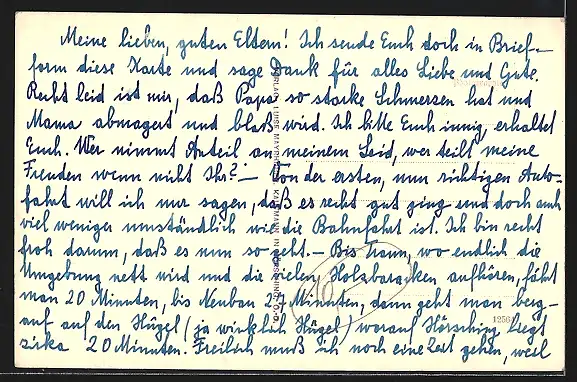 Meine lieben, guten Eltern! Ich sende Euch doch in Brief-
form diese Karte und sage Dank für alles Liebe und Gute.
Recht leid ist mir, daß Papa so starke Schmerzen hat und
Mama abmagert und blaß wird. Ich bitte Euch innig, erhaltet
Euch. Wer nimmt Anteil an meinem Leid, wer teilt meine
Freuden wenn nicht Ihr? – Von der ersten, nun richtigen Auto-
fahrt will ich nur sagen, daß es recht gut ging und doch auch
viel weniger umständlich wie die Bahnfahrt ist. Ich bin recht
froh darum, daß es nun so geht. – Bis Traun, wo endlich die
Umgebung nett wird und die vielen Holzbaraken aufhören, fährt
man 20 Minuten, bis Neubau 27 Minuten, dann geht man berg-
auf auf den Hügel (ja wirklich Hügel) worauf Hörsching liegt
zirka 20 Minuten. Freilich muß ich noch eine Zeit gehen, weil
VERLAG LUISE MAYR KAUFMANN IN HÖRSCHING, O.-Ö.